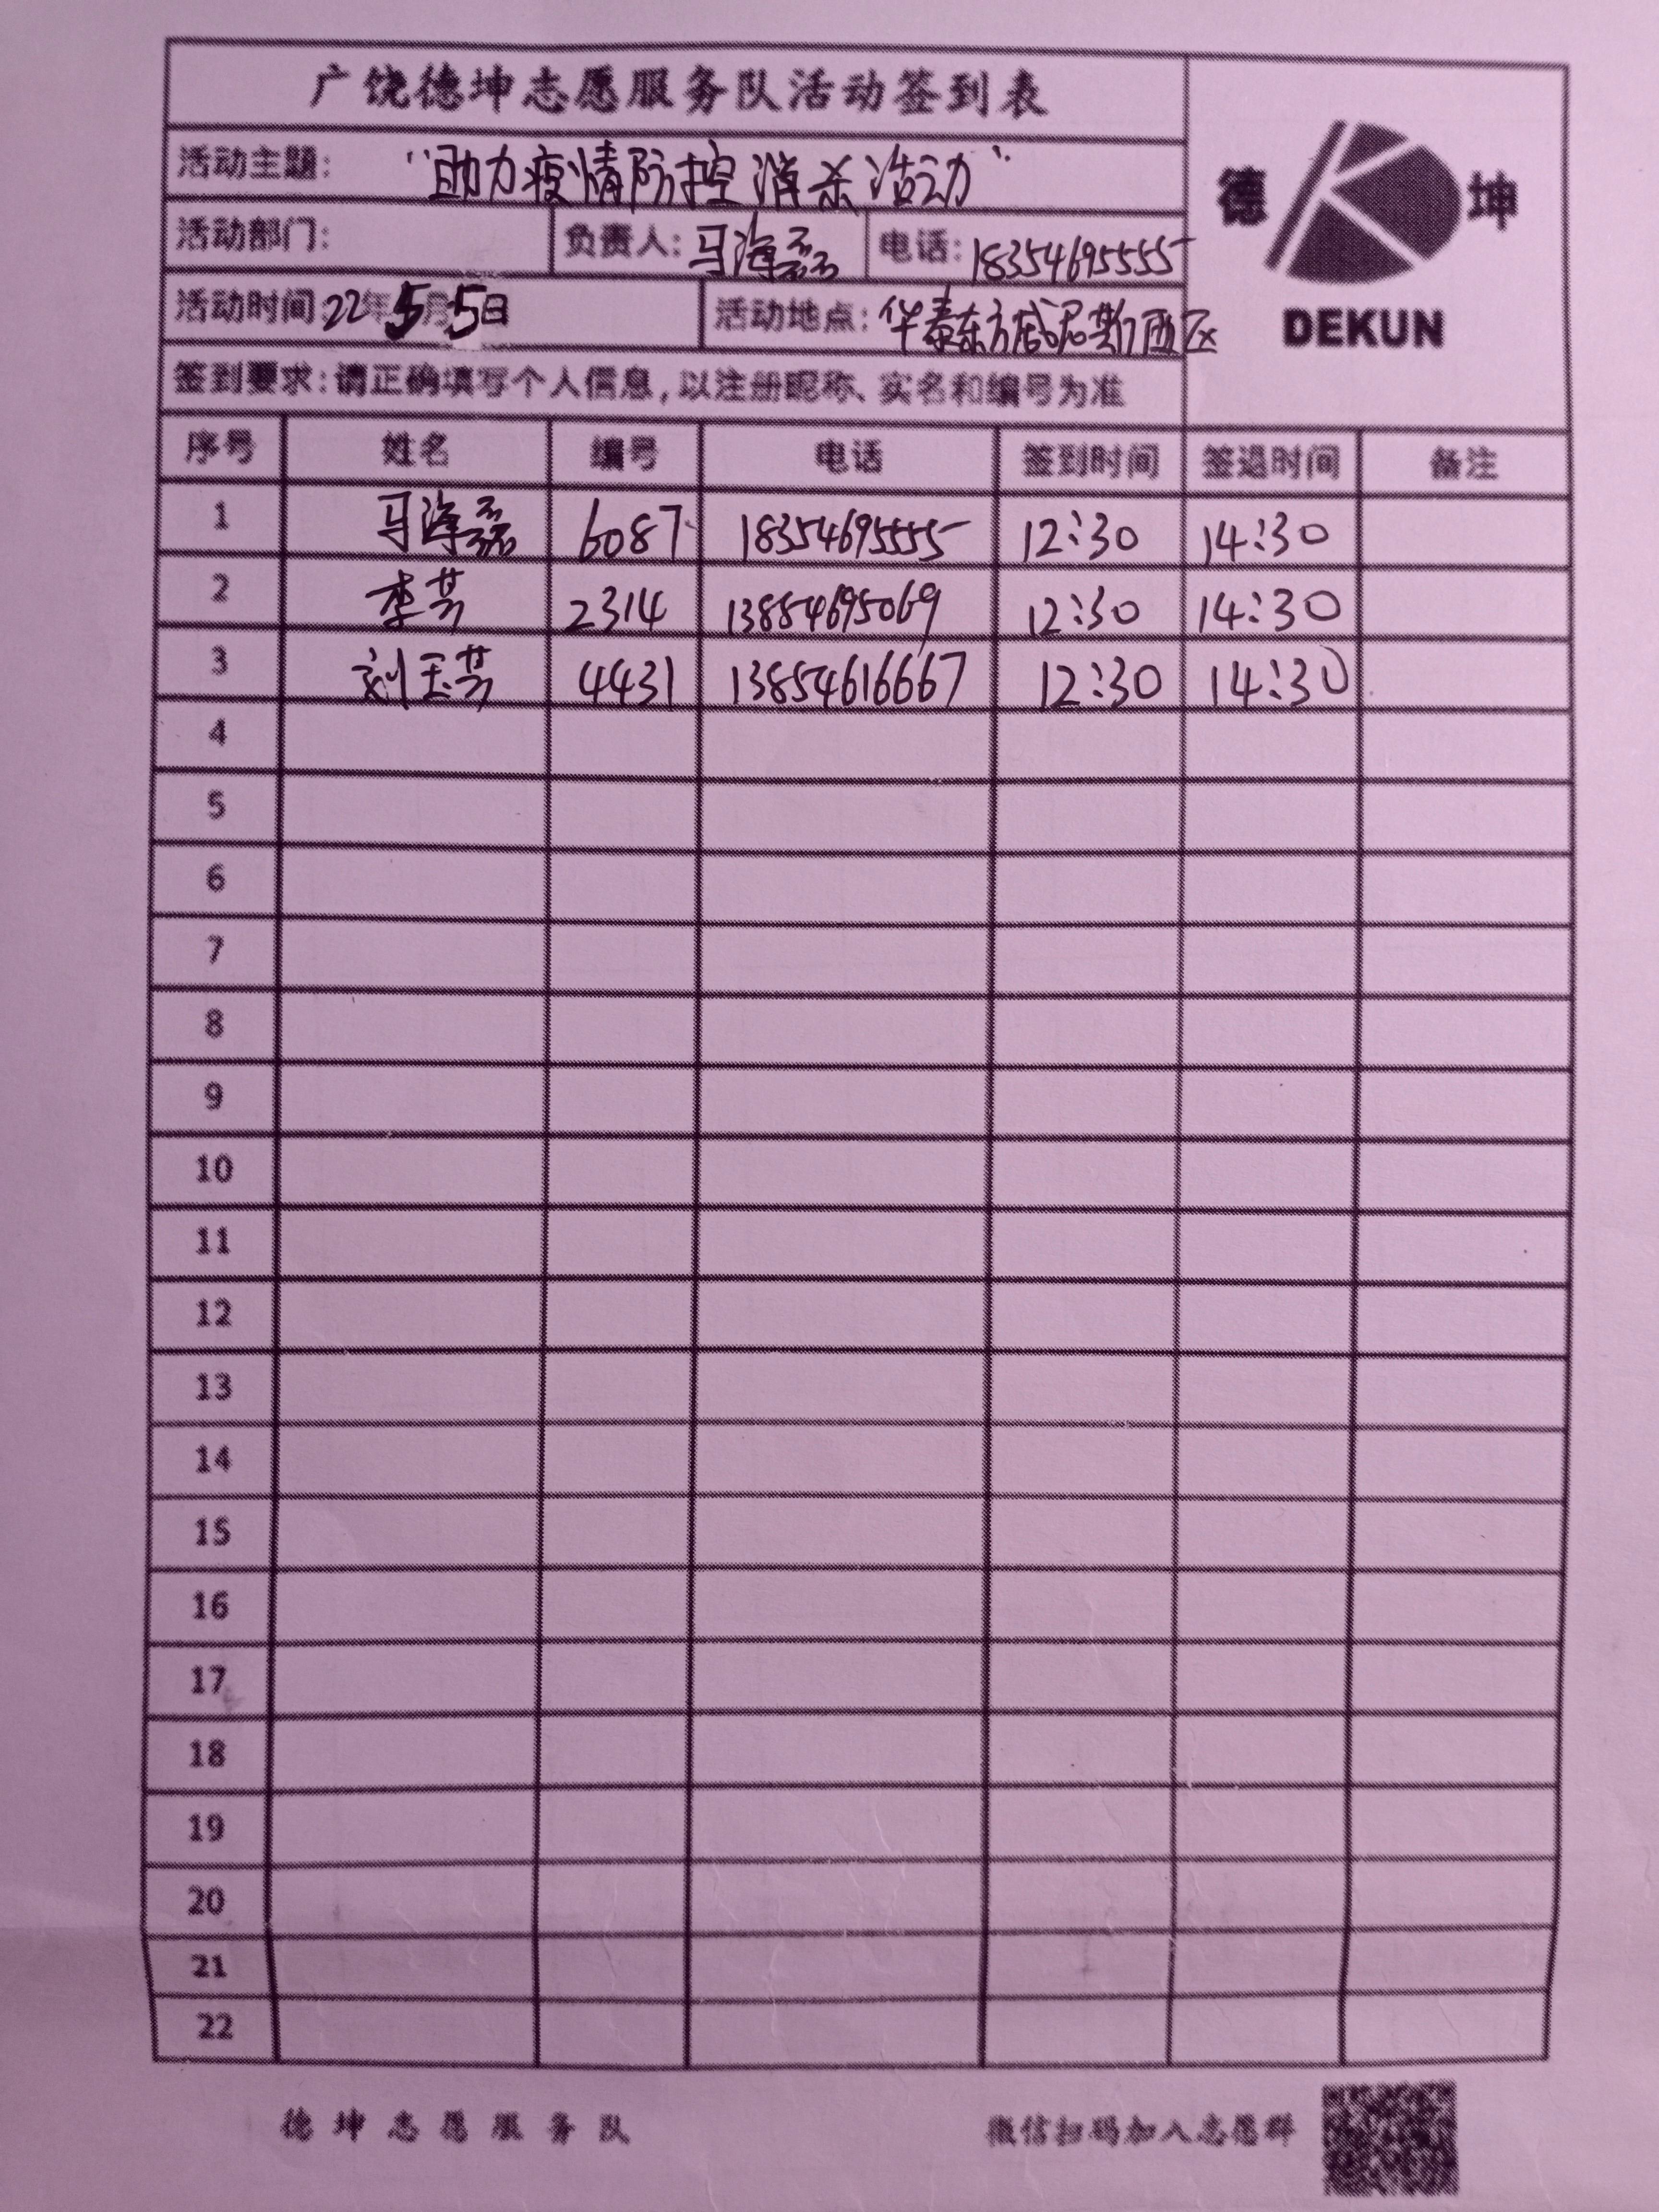 广饶德坤志愿服务队活动签到表
德 坤
DEKUN
活动主题: "助力疫情防控消杀活动"
活动部门: 负责人: 马海磊 电话: 18354695555
活动时间 22年5月5日 活动地点: 华泰东方威尼斯西区
签到要求:请正确填写个人信息,以注册昵称、实名和编号为准
序号 姓名 编号 电话 签到时间 签退时间 备注
1 马海磊 6087 18354695555 12:30 14:30
2 李芸 2314 13854695069 12:30 14:30
3 刘玉芸 4431 13854616667 12:30 14:30
4
5
6
7
8
9
10
11
12
13
14
15
16
17
18
19
20
21
22
德坤志愿服务队 微信扫码加入志愿群